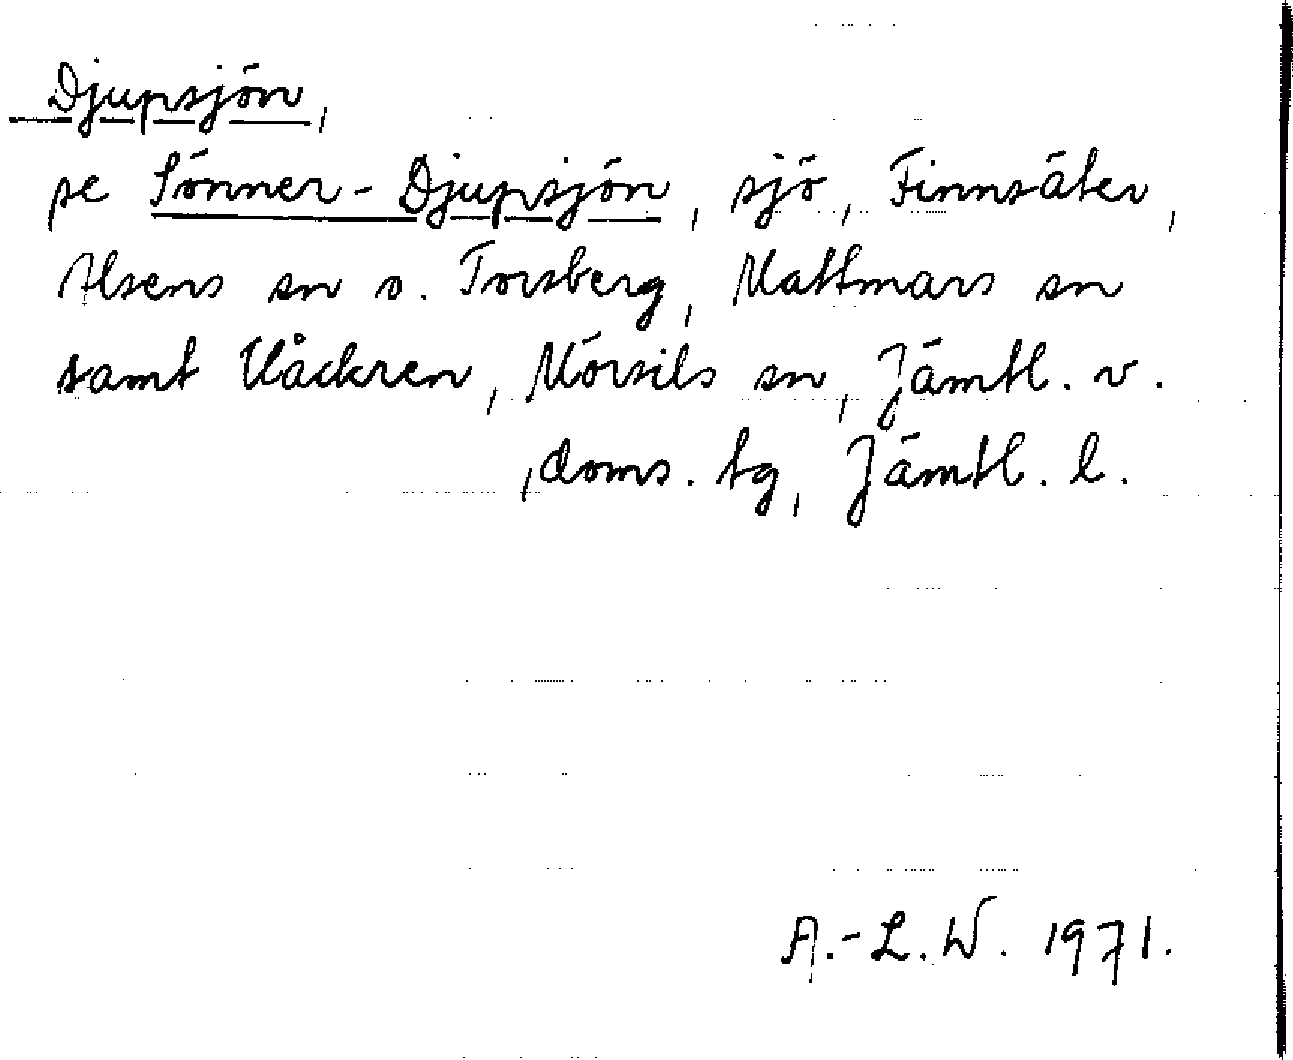 Djupsjön,
se Sönner-Djupsjön, sjö, Finnsäter,
Alsens sn o. Torsberg, Mattmars sn
samt Ulåckren, Mörsils sn, Jämtl. v.
doms. tg, Jämtl. l.
A.-L. W. 1971.